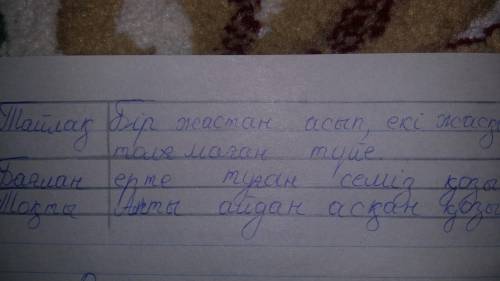 Тайлақ Бір жастан асып, екі жасқа
толмаған түйе.
Бағлан ерте туған семіз қозы
Тоқты Алты айдан асқан қозы